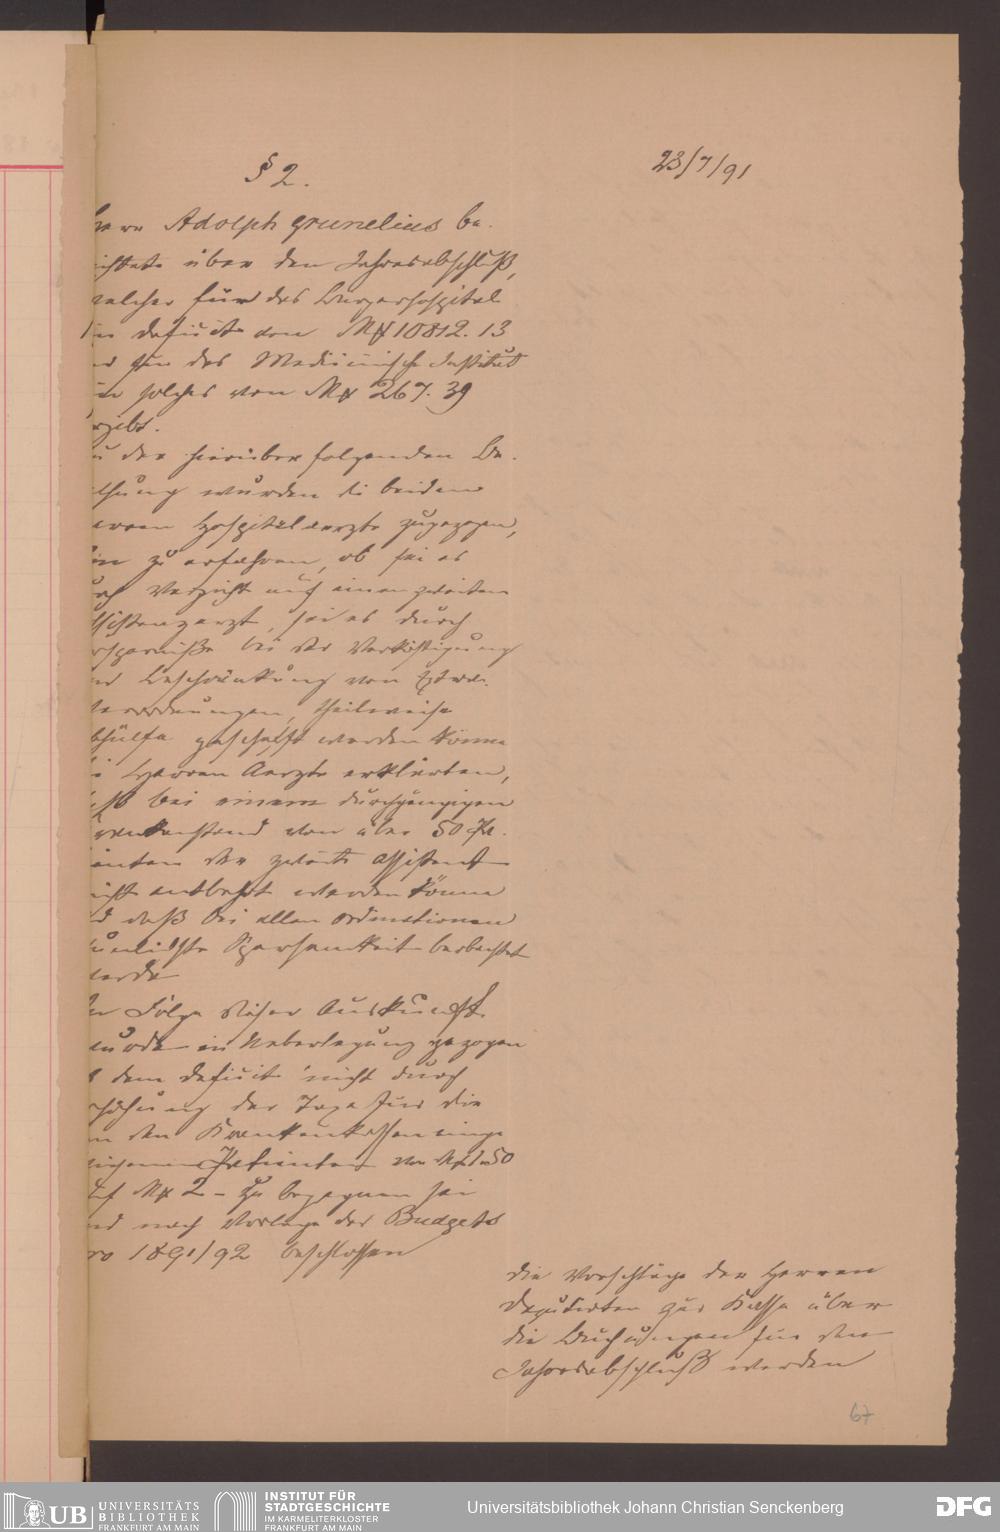 § 2.
23/7/91
Herr Adolph Grunelius be-
ichtete über den Jahresabschluß,
welcher für das Bürgerhospital
in deficit von M 10812. 13
nd für das Medicinische Institut
in solches von M 267. 39
rgibt.
u der hierüber folgenden Be-
thung wurden die beiden
erren Hospitalaerzte zugezogen,
um zu erfahren, ob sei es
urch Verzicht auf einen zweiten
ssistenzarzt, sei es durch
rsparniße bei der Verköstigung
nd Beschränkung von Extra-
verordnungen, theilweise
bhülfe geschafft werden könne
ie Herren Aerzte erklärten,
daß bei einem durchgängigen
rankenstand von über 50 Pa-
ienten der zweite Assistent
icht entbehrt werden könne
nd daß bei allen Ordinationen
Sparsamkeit beobachtet
werde
In Folge dieser Auskunft
wurde in Ueberlegung gezogen
ob dem Deficit nicht durch
rhöhung der Taxe für die
on den Krankenkassen einge
Patienten von M 1.50
uf M 2 – zu begegnen sei
nd nach Vorlage des Budgets
ro 1891/92 beschlossen
die Vorschläge der Herren
Deputirten zur Kasse über
die Buchungen für den
Jahresabschluß werden
67
UB UNIVERSITÄTS
BIBLIOTHEK
FRANKFURT AM MAIN
INSTITUT FÜR
STADTGESCHICHTE
IM KARMELITERKLOSTER
FRANKFURT AM MAIN
Universitätsbibliothek Johann Christian Senckenberg
DFG